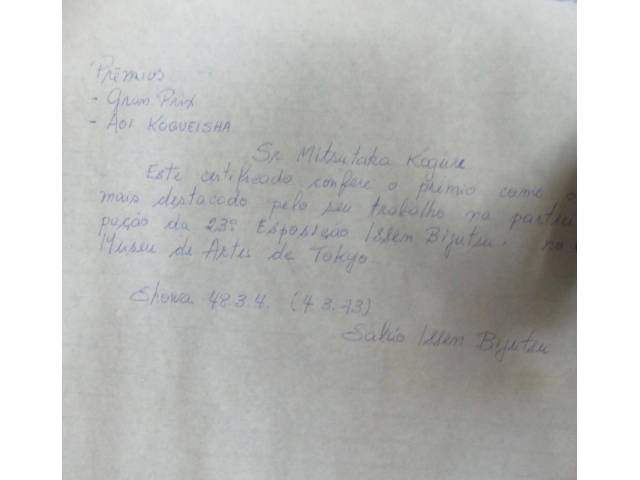 Prêmios
- Gran Prix
- Aoi KOGUEISHA
Sr. Mitsutaka Kogure
Este certificado confere o prêmio como o
mais destacado pelo seu trabalho na partici
pação da 23ª Exposição Issen Bijutsu. no
Museu de Artes de Tokyo.
Showa 48.3.4. (4.3.73)
Salão Issen Bijutsu